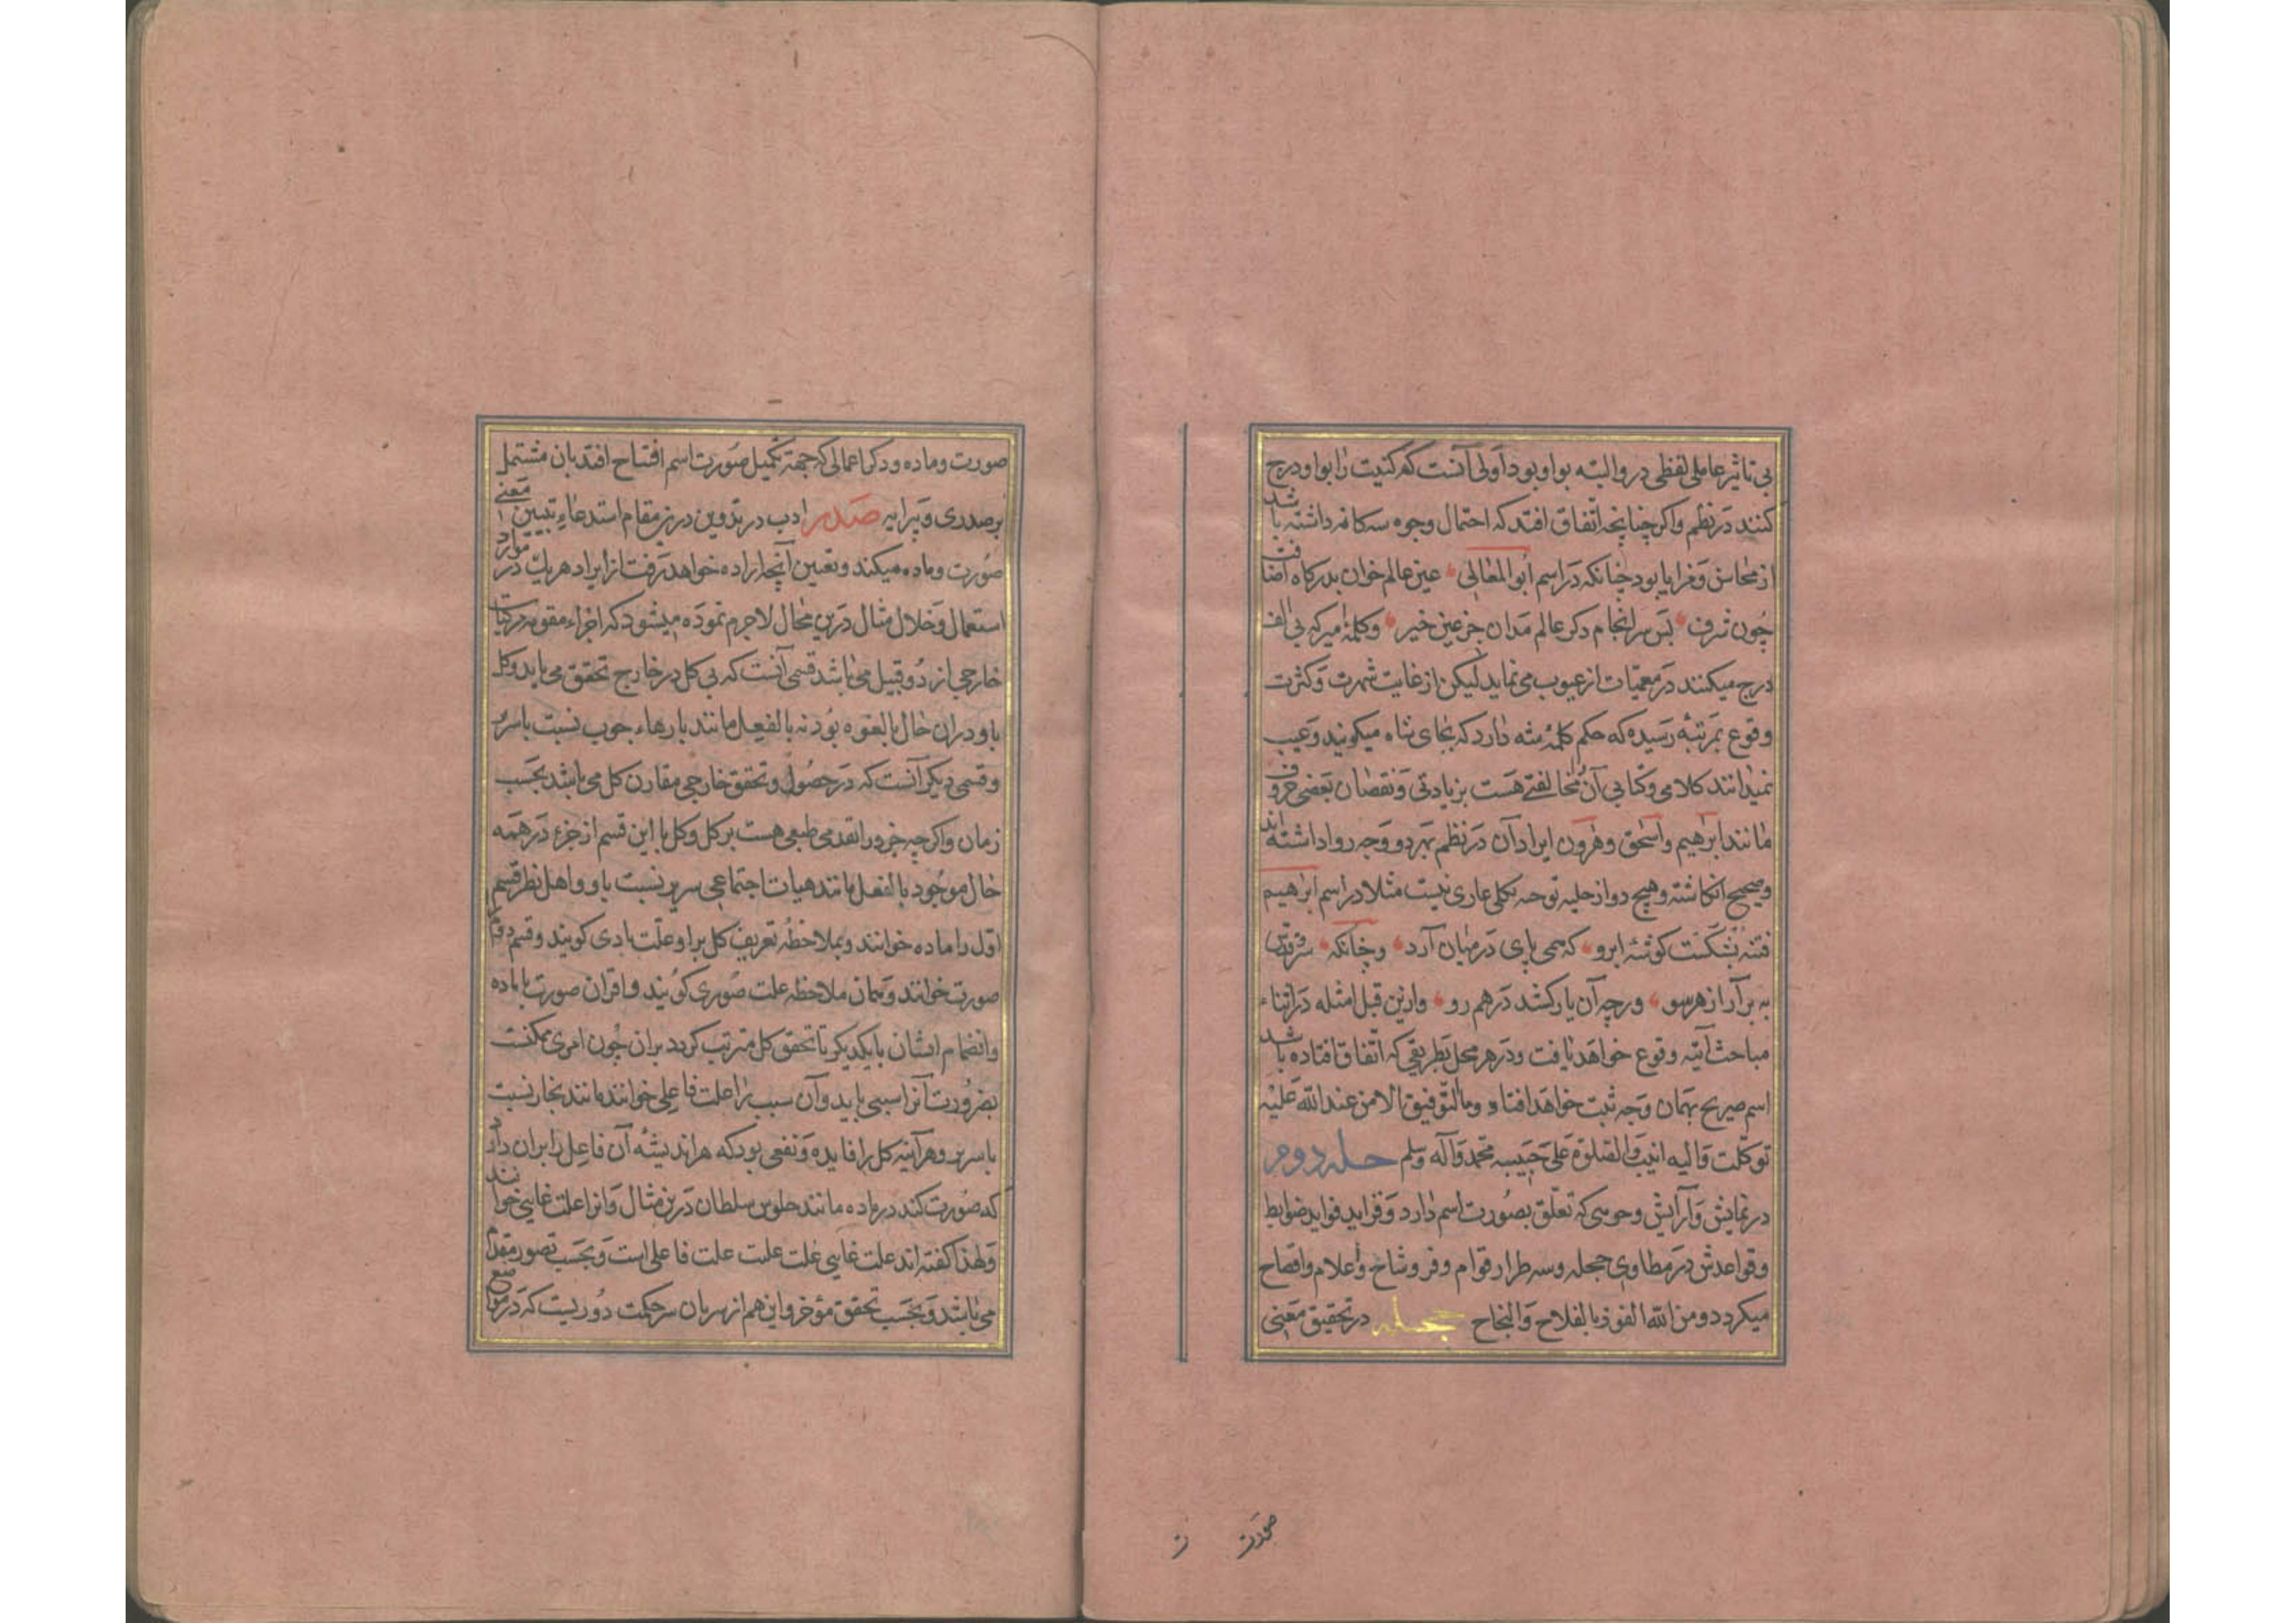 بی تاثیر عاملی لفظی در و البته بواو بود اولی آنست که کنیت را بواو درج
کنند در نظم و اکر چنانچه اتفاق افتد که احتمال وجوه سه کانه داشته باشد
از محاسن و مزایا بود چنانکه در اسم ابوالمعالی عین عالم خوان بدرکاه اضافت
چون شرف بس سرانجام دکر عالم مدان جز عین خیر و کلمه میر که بی الف
درج میکنند در معمیات از عیوب می نماید لیکن از غایت شهرت و کثرت
وقوع بمرتبه رسیده که حکم کلمه شه دارد که بجای شاه میکویند و عیب
نمیدانند کلامی و کتابی آن مخالفتی هست بزیادتی و نقصان بعضی حروف
مانند ابرهیم و اسحق و هرون ایراد آن در نظم بهر دو وجه روا داشته اند
و صحیح انکاشته و هیچ دو از حلیه توجه بکلی عاری نیست مثلا در اسم ابرهیم
فتنه بشکست کوشه ابرو که همی پای در میان آرد و چنانکه
به برآر از هر سو ورچه آن یار کشد در هم رو و ازین قبل امثله در اثناء
مباحث آتیه وقوع خواهد یافت و در هر محل بطریقی که اتفاق افتاده باشد
اسم صریح بهمان وجه ثبت خواهد افتاد وما التوفیق الا من عند الله علیه
توکلت والیه انیب والصلوة علی حبیبه محمد وآله وسلم حله دوم
در نمایش و آرایش وجوهی که تعلق بصورت اسم دارد و فراید فواید ضوابط
و قواعدش در مطاوی حجله و سه طراز قوام و فر و شاخ و اعلام و افصاح
میکردد و من الله الفوز بالفلاح والنجاح حجله در تحقیق معنی
صورت
صورت و ماده و ذکر اعمالی که جهة تکمیل صورت اسم افتتاح افتد بان مشتمل
بر صدری و پیرایه صدر ادب در تدوین درین مقام استدعاء تبیین معنی
صورت و ماده میکند و تعیین آنچه اراده خواهد رفت از ایراد هر یک در موارد
استعمال و خلال مثال درین محال لاجرم نموده میشود که اجزاء مقومه مرکبات
خارجی از دو قبیل می باشد قسمی آنست که بی کل در خارج تحقق می یابد و کل
باو دران حال بالقوه بود نه بالفعل مانند پارهاء چوب نسبت با سریر
و قسمی دیکر آنست که در حصول و تحقق خارجی مقارن کل می باشد بحسب
زمان و اکر چه جزو را تقدمی طبعی هست بر کل و کل با این قسم از جزء در همه
حال موجود بالفعل مانند هیات اجتماعی سریر نسبت باو و اهل نظر قسم
اول را ماده خوانند و بملاحظه تعریف کل برا و علت مادی کویند و قسم دوم را
صورت خوانند و بهمان ملاحظه علت صوری کویند و اقران صورت با ماده
و انضمام ایشان با یکدیکر تا تحقق کل مترتب کردد بران چون امری ممکنست
بضرورت آنرا سببی باید و آن سبب را علت فاعلی خوانند مانند نجار نسبت
با سریر و هر آینه کل را فایده و نفعی بود که هر اندیشه آن فاعل را بران دارد
که صورت کند در ماده مانند جلوس سلطان درین مثال و انرا علت غایی خوانند
و لهذا کفته اند علت غایی علت علت علت فاعلی است و بحسب تصور مقدم
می باشد و بحسب تحقق مؤخر و این هم از سریان سر حکمت دوریست که در مواضع